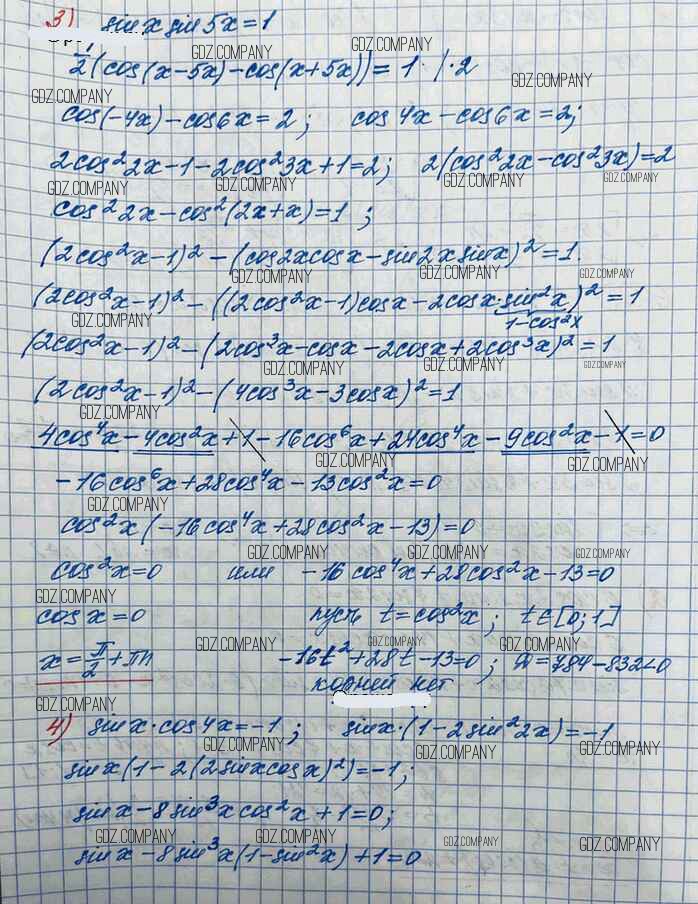 3) sin x sin 5x = 1
1/2 (cos(x-5x) - cos(x+5x)) = 1 · | · 2
cos(-4x) - cos 6x = 2; cos 4x - cos 6x = 2;
2cos²2x - 1 - 2cos²3x + 1 = 2; 2(cos²2x - cos²3x) = 2
cos²2x - cos²(2x+x) = 1;
(2cos²x - 1)² - (cos2x cosx - sin2x sinx)² = 1.
(2cos²x - 1)² - ((2cos²x - 1)cosx - 2cosx · sin²x)² = 1
1 - cos²x
(2cos²x - 1)² - (2cos³x - cosx - 2cosx + 2cos³x)² = 1
(2cos²x - 1)² - (4cos³x - 3cosx)² = 1
4cos⁴x - 4cos²x + 1 - 16cos⁶x + 24cos⁴x - 9cos²x - 1 = 0
-16cos⁶x + 28cos⁴x - 13cos²x = 0
cos²x (-16cos⁴x + 28cos²x - 13) = 0
cos²x = 0 или -16cos⁴x + 28cos²x - 13 = 0
cos x = 0 пусть t = cos²x; t ∈ [0; 1]
x = π/2 + πn -16t² + 28t - 13 = 0; D = 784 - 832 < 0
корней нет
4) sin x · cos 4x = -1; sin x · (1 - 2sin²2x) = -1
sin x (1 - 2(2sinx cosx)²) = -1;
sin x - 8sin³x cos²x + 1 = 0;
sin x - 8sin³x (1 - sin²x) + 1 = 0
GDZ.COMPANY